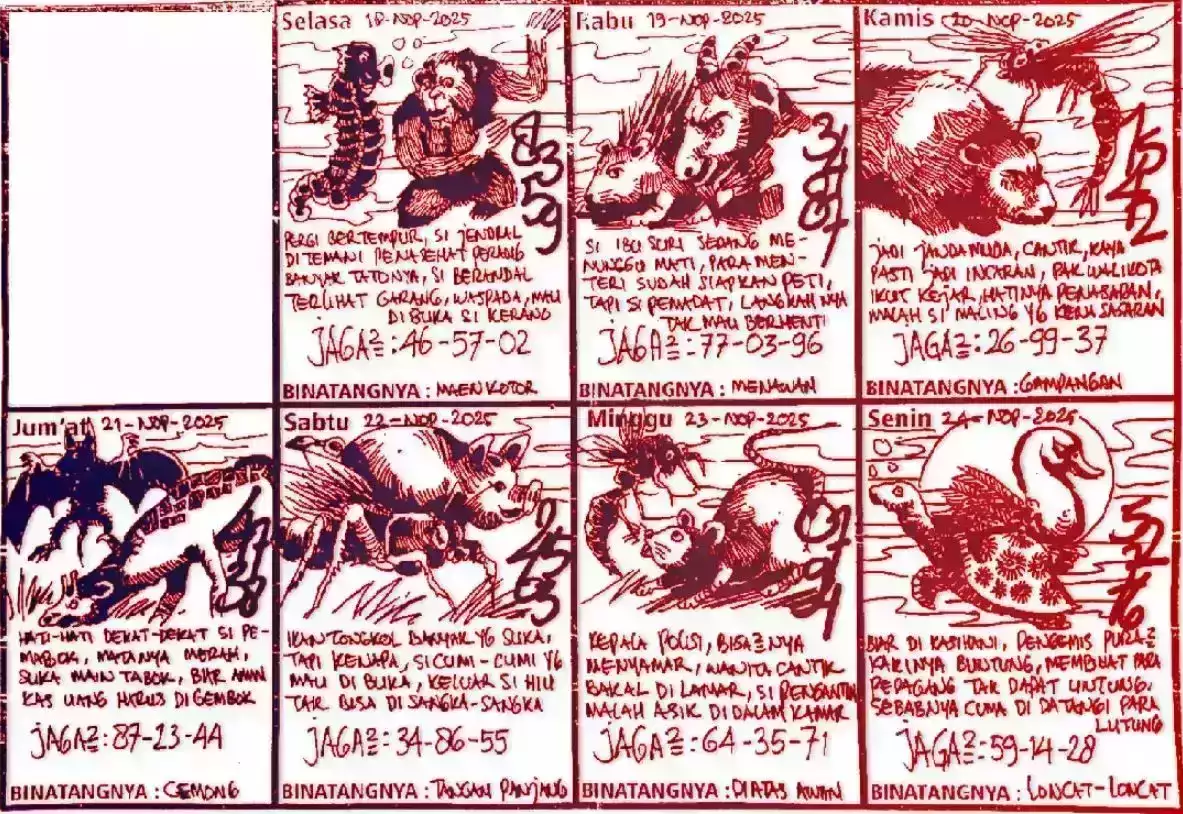 Selasa 18-NOP-2025
83
59
PERGI BERTEMPUR, SI JENDRAL
DITEMANI PENASEHAT PERANG
BANYAK TATONYA, SI BERANDAL
TERLIHAT GARANG, WASPADA, MAU
DIBUKA SI KERANG
JAGA2 : 46-57-02
BINATANGNYA : MAEN KOTOR
Rabu 19-NOP-2025
SI IBU SURI SEDANG ME-
NUNGGU MATI, PARA MEN-
TERI SUDAH SIAPKAN PETI,
TAPI SI PEMADAT, LANGKAHNYA
TAK MAU BERHENTI
JAGA2 : 77-03-96
BINATANGNYA : MENAWAN
Kamis 20-NOP-2025
JADI JANDA MUDA, CANTIK, KAYA
PASTI JADI INCARAN, PAK WALIKOTA
IKUT KEJAR, HATINYA PENASARAN,
MALAH SI MALING YG KENA SASARAN
JAGA2 : 26-99-37
BINATANGNYA : GAMPANGAN
Jum'at 21-NOP-2025
HATI-HATI DEKAT-DEKAT SI PE-
MABOK, MATANYA MERAH,
SUKA MAIN TABOK, BIAR AMAN
KAS UANG HARUS DI GEMBOK
JAGA2 : 87-23-44
BINATANGNYA : CEMONG
Sabtu 22-NOP-2025
IKAN TONGKOL BANYAK YG SUKA,
TAPI KENAPA, SI CUMI-CUMI YG
MAU DI BUKA, KELUAR SI HIU
TAK BISA DI SANGKA-SANGKA
JAGA2 : 34-86-55
BINATANGNYA : TANGAN PANJANG
Minggu 23-NOP-2025
KEPALA POLISI, BISA2NYA
MENYAMAR, WANITA CANTIK
BAKAL DI LAMAR, SI PENGANTIN
MALAH ASIK DI DALAM KAMAR
JAGA2 : 64-35-71
BINATANGNYA : DIATAS AWAN
Senin 24-NOP-2025
52
76
BIAR DI KASIHANI, PENGEMIS PURA2
KAKINYA BUNTUNG, MEMBUAT PARA
PEDAGANG TAK DAPAT UNTUNG,
SEBABNYA CUMA DI DATANGI PARA
LUTUNG
JAGA2 : 59-14-28
BINATANGNYA : LONCAT-LONCAT